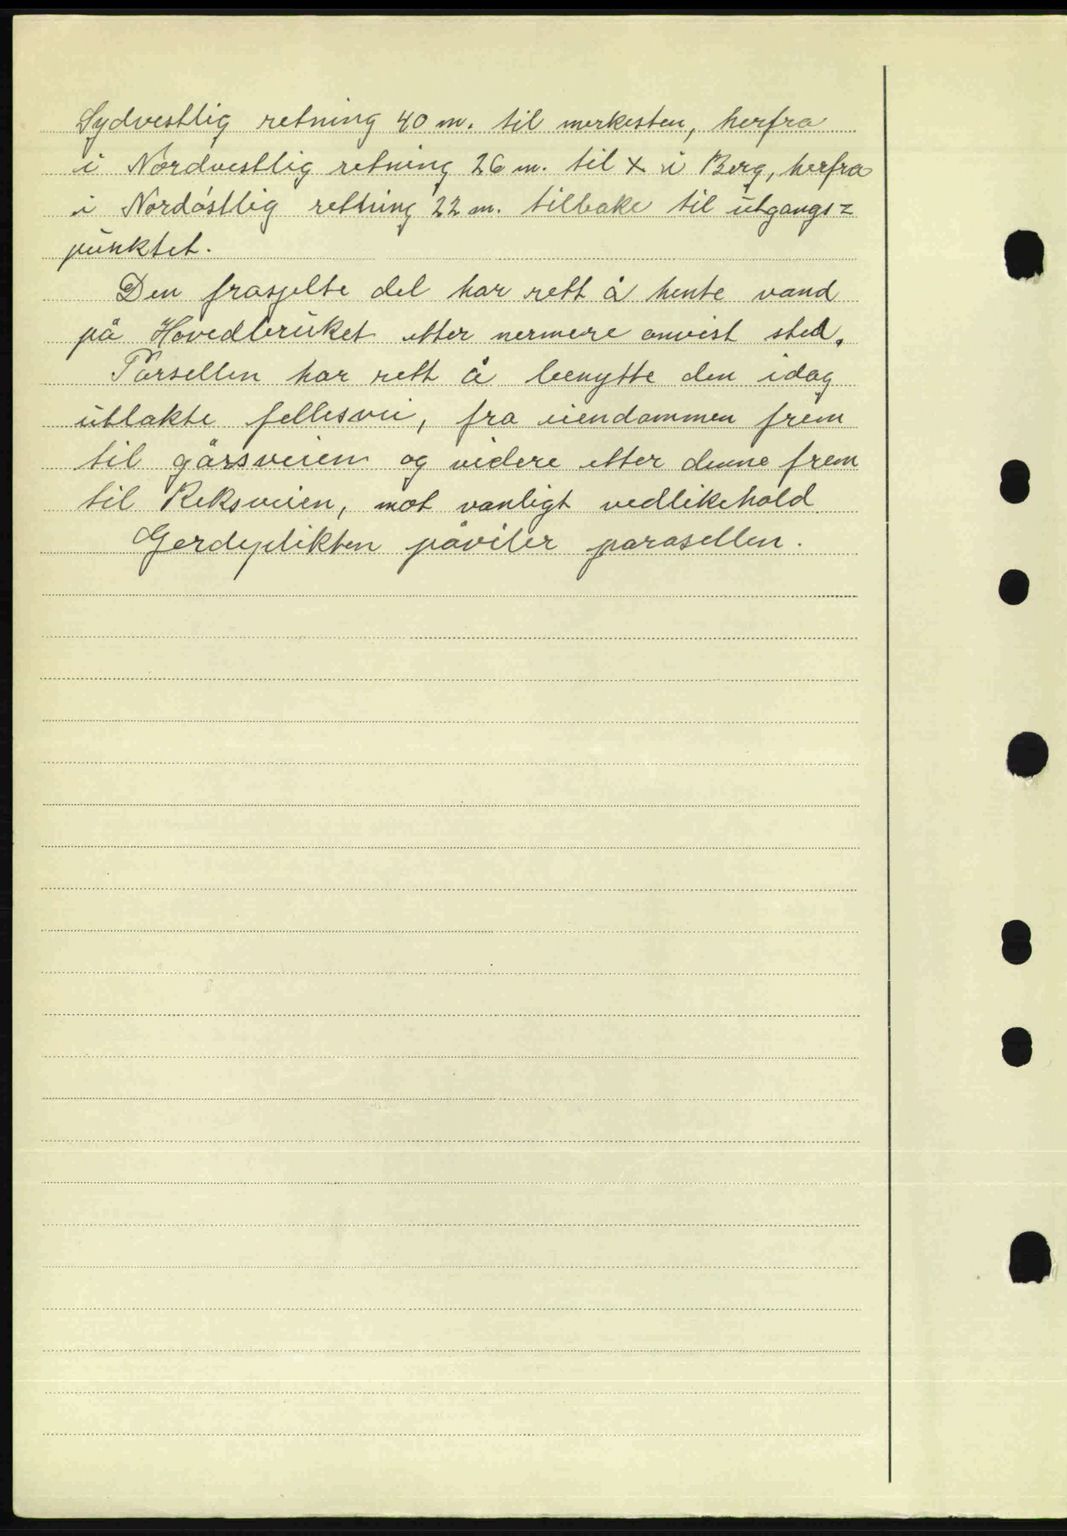 Sydvestlig retning 40 m. til merkesten, herfra
i Nordvestlig retning 26 m. til x i Berg, herfra
i Nordøstlig rettning 22 m. tilbake til utgangs=
punktet.
Den fraskjelte del har rett å hente vand
på Hovedbruket etter nermere anvist sted.
Parsellen har rett å benytte den idag
utlakte fellesvei, fra eiendammen frem
til gårsveien og videre etter denne frem
til Reksveien, mot vanligt vedlikehold
Gerdeplikten påviler parasellen.